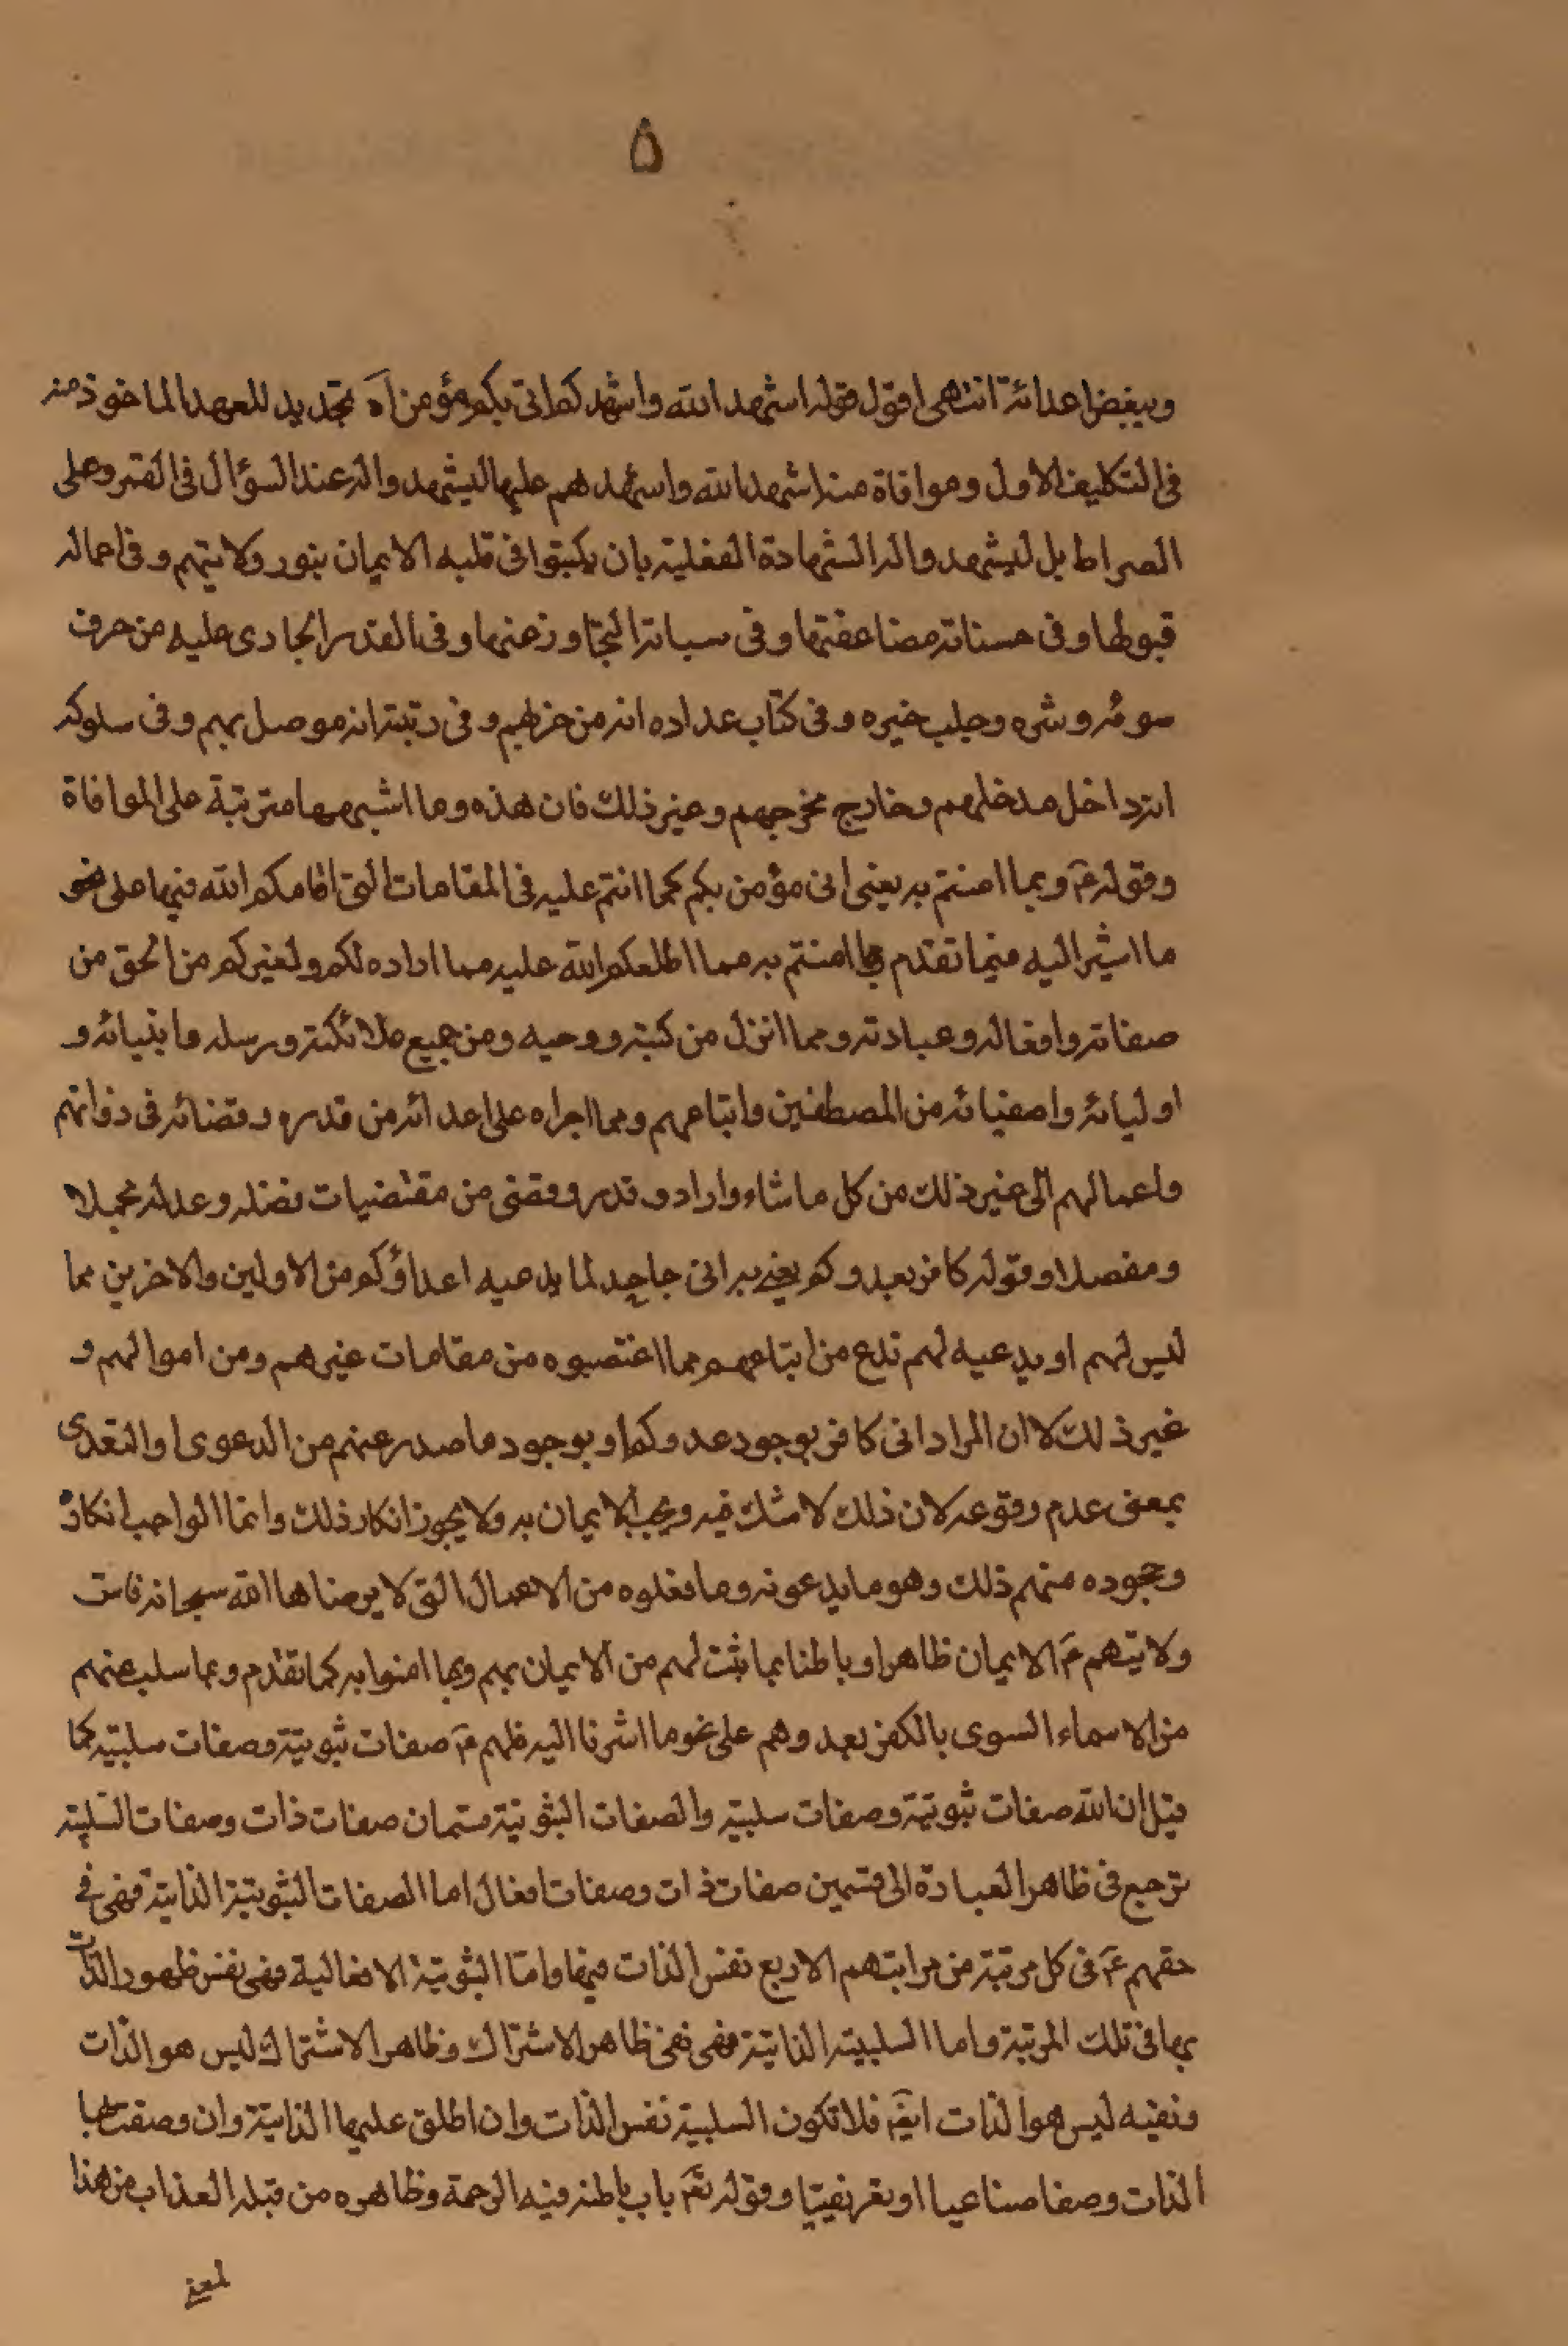 ۵
وببغض اعدائه انتهى اقول قوله اشهد الله واشهدكم انى بكم مؤمن آه تجديد للعهد الماخوذ منه
فى التكليف الاول وموافاة منه اشهد الله واشهدهم عليها ليشهدوا له عند السؤال فى القبر وعلى
الصراط بل ليشهدوا له الشهادة الفعلية بان يكتبوا فى قلبه الايمان بنور ولايتهم وفى اعماله
قبولها وفى حسناته مضاعفتها وفى سياته التجاوز عنها وفى القدر الجارى عليه من حرف
سوئه وشره وجلب خيره وفى كتاب عداده انه من حزبهم وفى رتبته انه موصل بهم وفى سلوكه
انه داخل مدخلهم وخارج مخرجهم وغير ذلك فان هذه وما اشبهها مترتبة على الموافاة
وقوله ع وبما امنتم به يعنى انى مؤمن بكم كما انتم عليه فى المقامات التى اقامكم الله فيها على نحو
ما اشير اليه فيما تقدم وبما امنتم به مما اطلعكم الله عليه مما اراده لكم ولغيركم من الحق من
صفاته وافعاله وعبادته ومما انزل من كتبه ووحيه ومن جميع ملائكته ورسله وانبيائه و
اوليائه واصفيائه من المصطفين واتباعهم ومما اجراه على اعدائه من قدره وقضائه فى ذواتهم
واعمالهم الى غير ذلك من كل ما شاء واراد وقدر وقضى من مقتضيات فضله وعدله مجملا
ومفصلا وقوله كافر بعدوكم يعنى به انى جاحد لما يدعيه اعداؤكم من الاولين والاخرين مما
ليس لهم او يدعيه لهم مدع من اتباعهم مما اغتصبوه من مقامات غيرهم ومن اموالهم و
غير ذلك لا ان المراد انى كافر بوجود عدوكم او بوجود ما صدر عنهم من الدعوى او التعدى
بمعنى عدم وقوعه لان ذلك لا شك فيه ويجب الايمان به ولا يجوز انكار ذلك وانما الواجب انكاره
وجحوده منهم ذلك وهو ما يدعونه وما فعلوه من الاعمال التى لا يرضاها الله سبحانه فاست
ولايتهم ع الايمان ظاهرا وباطنا بما ثبت لهم من الايمان بهم وبما امنوا به كما تقدم وبما سلب عنهم
من الاسماء السوى بالكفر بعدوهم على نحو ما اشرنا اليه فلهم ع صفات ثبوتية وصفات سلبية كما
قيل ان الله صفات ثبوتية وصفات سلبية والصفات الثبوتية قسمان صفات ذات وصفات السلبية
ترجع فى ظاهر العبادة الى قسمين صفات ذات وصفات افعال اما الصفات الثبوتية الذاتية فهى فى
حقهم ع فى كل مرتبة من مراتبهم الاربع نفس الذات فيها واما الثبوتية الافعالية فهى نفس ظهور الذات
بها فى تلك المرتبة واما السلبية الذاتية فهى نفى ظاهر الاشتراك وظاهر الاشتراك ليس هو الذات
ونفيه ليس هو الذات ايضا فلا تكون السلبية نفس الذات وان اطلق عليها الذاتية وان وصفت بها
الذات وصفا صناعيا او تعريفيا وقوله تع باب باطنه فيه الرحمة وظاهره من قبله العذاب من هذا